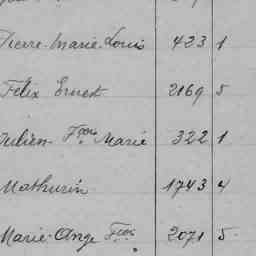 Pierre-Marie-Louis 423 1
Félix Ernest 2169 5
Julien-Fçois Marie 322 1
Mathurin 1743 4
Marie-Ange Fçois 2071 5